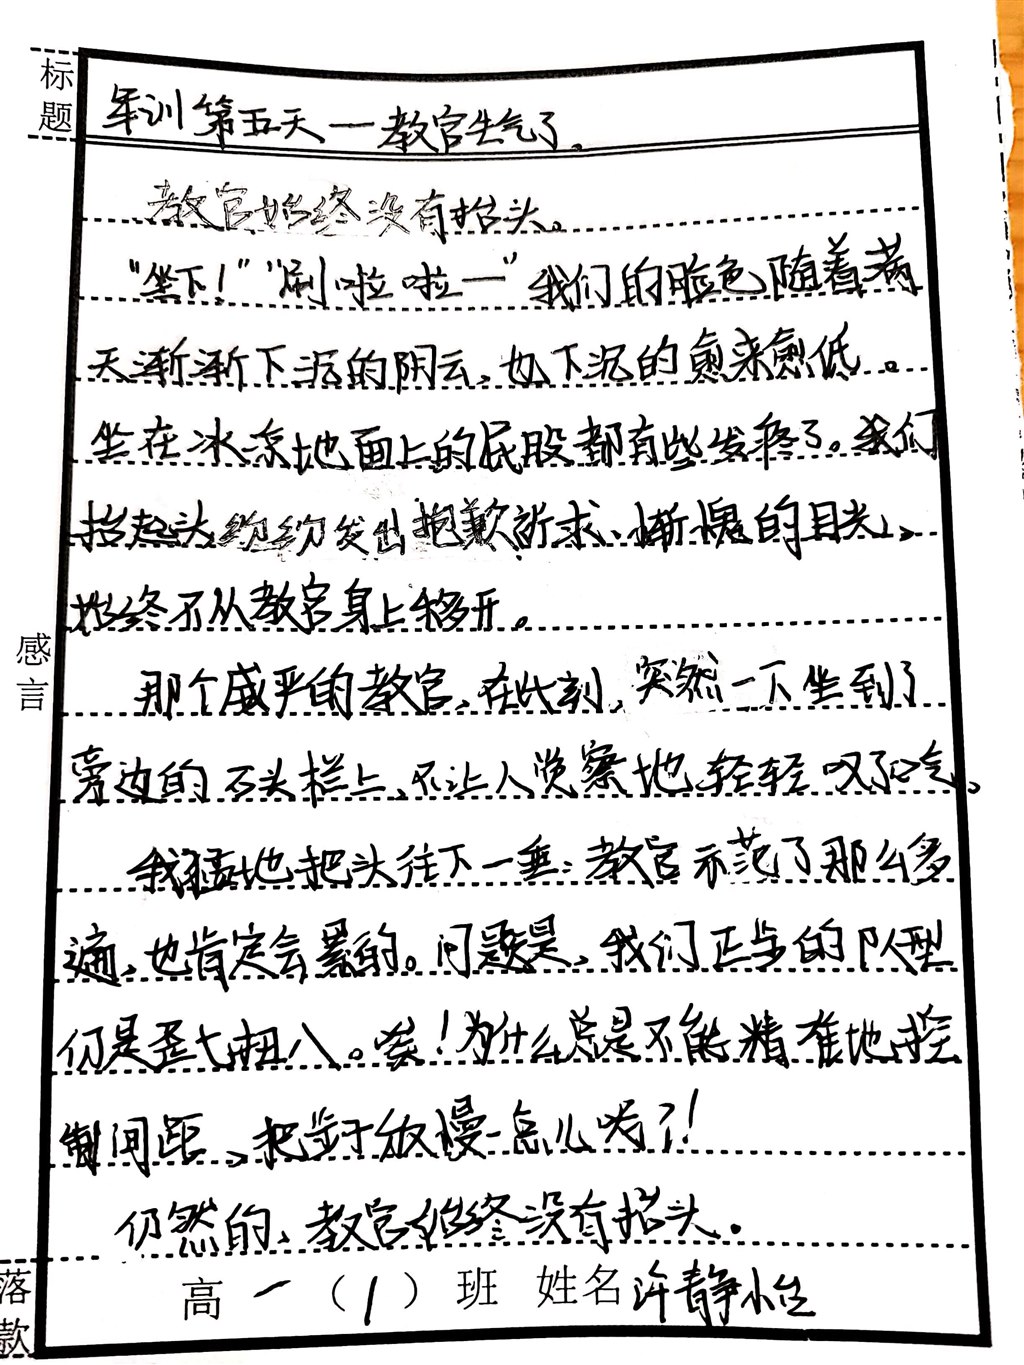 标题
军训第五天——教官生气了。
教官始终没有抬头。
“坐下！”“刷啦啦—”我们的脸色随着满
天渐渐下沉的阴云、也下沉的愈来愈低。
坐在冰凉地面上的屁股都有些发疼了。我们
抬起头，纷纷发出抱歉祈求、惭愧的目光、
始终不从教官身上移开。
感言
那个威严的教官、在此刻、突然一下坐到了
旁边的石头栏上、不让人觉察地轻轻叹了口气。
我猛地把头往下一垂：教官示范了那么多
遍、也肯定会累的。问题是、我们正步的队型
仍是歪七扭八。唉！为什么总是不能精准地控
制间距、把步子放慢一点儿呢了！
仍然的、教官始终没有抬头。
落款
高一（1）班 姓名 许静